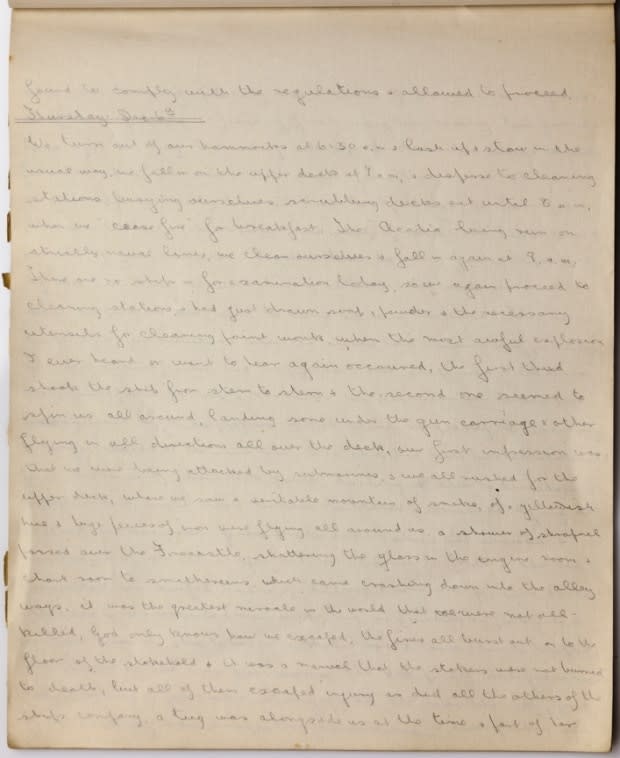 found to comply with the regulations & allowed to proceed.
Thursday. Dec 6th
We turn out of our hammocks at 6.30 a.m. & lash up & stow in the
usual way, we fall in on the upper decks at 7 a.m. & disperse to cleaning
stations, busying ourselves scrubbing decks ect until 8 a.m.
when we "cease fire" for breakfast. The Acadia being run on
strictly naval lines, we clean ourselves & fall in again at 9. a.m.
There are no ships in for examination today, so we again proceed to
cleaning stations & had just drawn soap, powder & the necessary
utensils for cleaning paint work, when the most awful explosion
I ever heard or want to hear again occurred, the first thud
shook the ship from stem to stern & the second one seemed to
spin us all around, landing some under the gun carriage & other
flying in all directions all over the deck, our first impression was
that we were being attacked by submarines, & we all rushed for the
upper deck, where we saw a veritable mountain of smoke, of a yellowish
hue & huge pieces of iron were flying all around us. a shower of shrapnel
passed over the Forecastle, shattering the glass in the engine room &
chart room to smithereens, which came crashing down into the alley
ways. it was the greatest miracle in the world that we were not all
killed, God only knows how we escaped, the fires all burst out on to the
floor of the stokehold & it was a marvel that the stokers were not burned
to death, but all of them escaped injury as did all the others of the
ships company. a tug was alongside us at the time & part of her